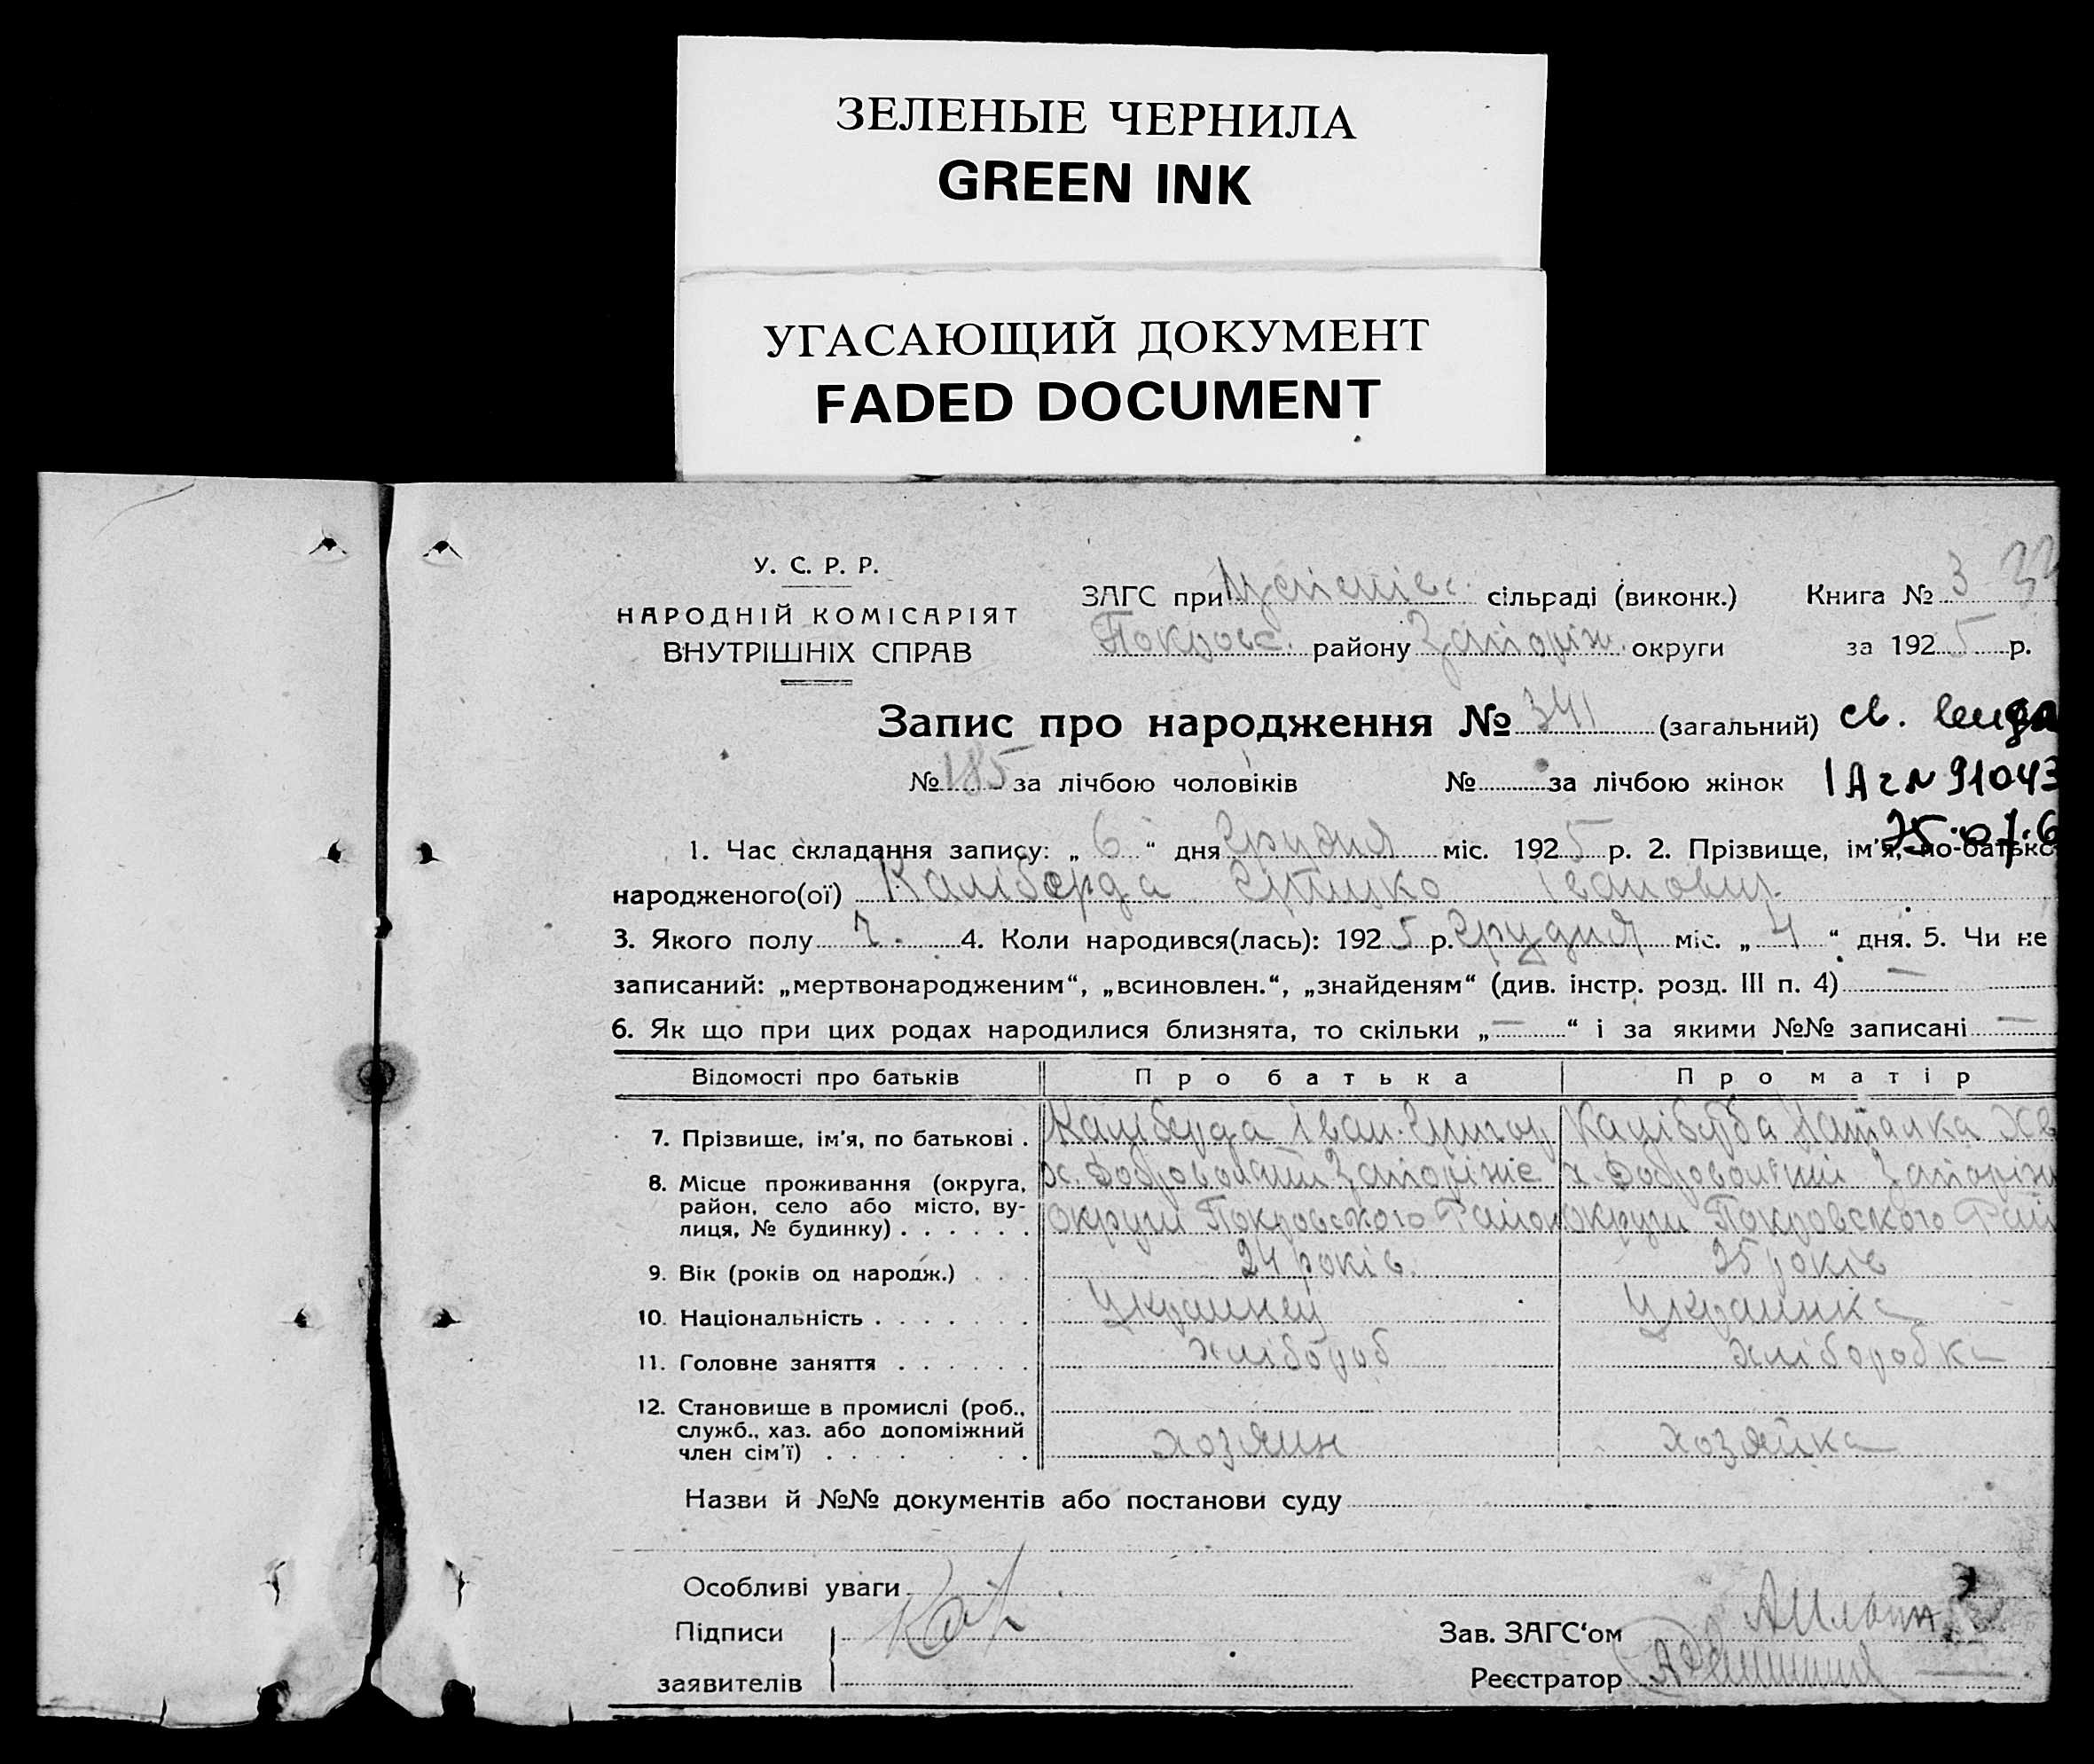 ЗЕЛЕНЫЕ ЧЕРНИЛА
GREEN INK
УГАСАЮЩИЙ ДОКУМЕНТ
FADED DOCUMENT
У. С. Р. Р.
НАРОДНІЙ КОМІСАРІЯТ
ВНУТРІШНІХ СПРАВ
ЗАГС при сільраді (виконк.) Книга № 3
Покровс. району Запоріж. округи за 1925 р.
Запис про народження № 341 (загальний) св. видан
№ 185 за лічбою чоловіків № за лічбою жінок IАг N 91043
1. Час складання запису: „ 6 “ дня Грудня міс. 1925 р. 2. Прізвище, ім'я, по-батько
народженого(ої) Каліберда Грицько Іванович.
3. Якого полу ч. 4. Коли народився(лась): 1925 р. Грудня міс. „ 4 “ дня. 5. Чи не
записаний: „мертвонародженим“, „всиновлен.“, „знайденям“ (див. інстр. розд. III п. 4) —
6. Як що при цих родах народилися близнята, то скільки „ — “ і за якими №№ записані —
Відомості про батьків Про батька Про матір
7. Прізвище, ім'я, по батькові . Каліберда Іван Григор Каліберда Наталка Хв
8. Місце проживання (округа, район, село або місто, вулиця, № будинку) . . . . . .
х. Запоріжс х. Запоріж
округи Покровского Район округи Покровского Рай
9. Вік (років од народж.) . . . 24 років. 25 років
10. Національність . . . . . . . Украинец Украинка
11. Головне заняття . . . . . . хлібороб хлiборобка
12. Становище в промислі (роб.,
служб., хаз. або допоміжний
член сім'ї) . . . . . . . хозяин хозяйка
Назви й №№ документів або постанови суду
Особливі уваги
Підписи Зав. ЗАГС'ом
заявителів Реєстратор